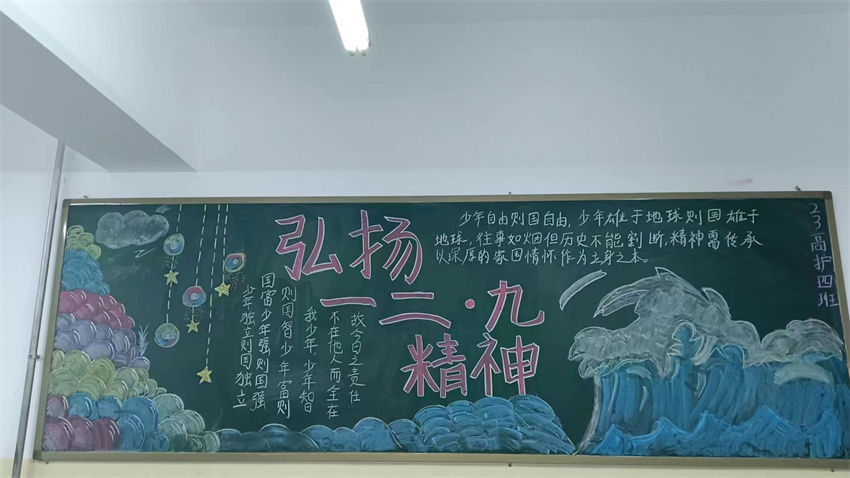 弘扬
一二·九
精神
少年自由则国自由,少年雄于地球则国雄于
地球,往事如烟但历史不能割断,精神需传承
以深厚的家国情怀作为立身之本。
故今日之责任
不在他人而全在
我少年,少年智
则国智少年富则
国富少年强则国强
少年独立则国独立
23高护四班